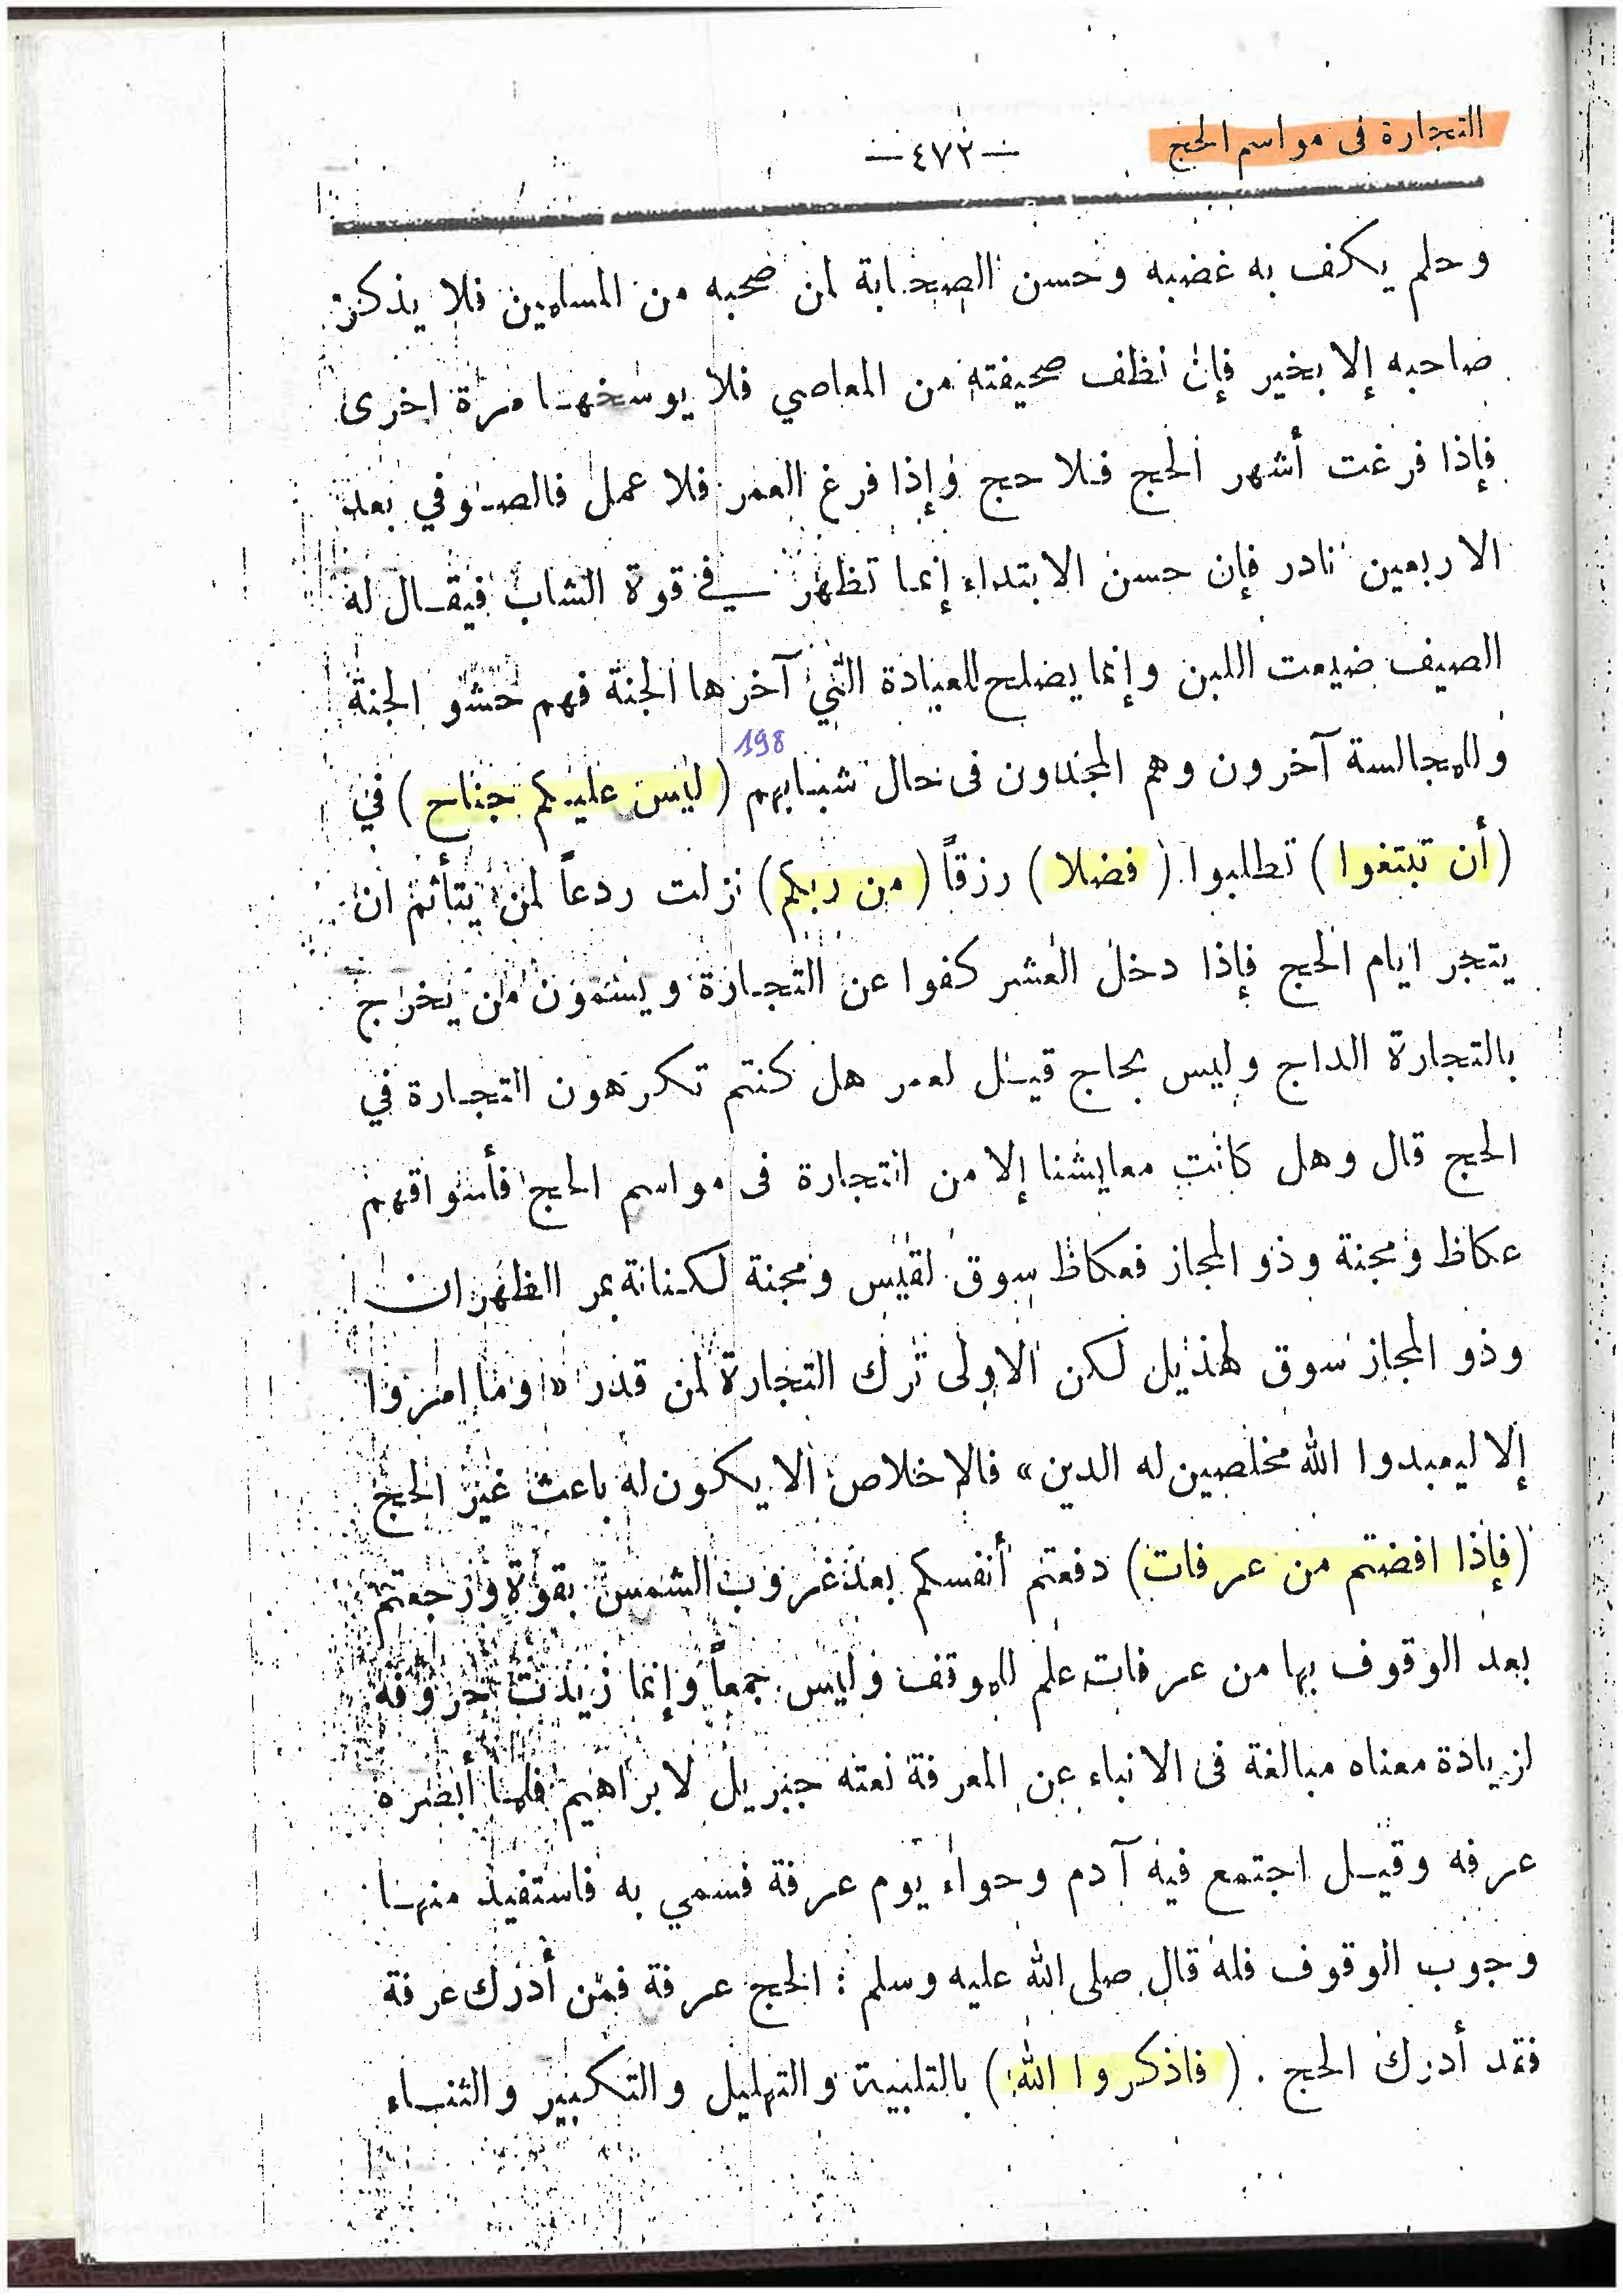 التجارة فى مواسم الحج
—٤٧٢—
وحلم يكف به غضبه وحسن الصحابة لمن صحبه من المسلمين فلا يذكر
صاحبه إلا بخير فإن نظف صحيفته من المعاصي فلا يوسخها مرة اخرى
فإذا فرغت أشهر الحج فلا حج وإذا فرغ العمر فلا عمل فالصوفي بعد
الاربعين نادر فإن حسن الابتداء إنما تظهر في قوة الشاب فيقال له
الصيف ضيعت اللبن وإنما يصلح للعبادة التي آخرها الجنة فهم حشو الجنة
وللمجالسة آخرون وهم المجندون فى حال شبابهم (ليس عليكم جناح) في
198
(أن تبتغوا) تطلبوا (فضلا) رزقاً (من ربكم) نزلت ردعاً لمن يتأثم ان
يتجر ايام الحج فإذا دخل العشر كفوا عن التجارة ويسمون من يخرج
بالتجارة الداج وليس بحاج قيل لعمر هل كنتم تكرهون التجارة في
الحج قال وهل كانت معايشنا إلا من التجارة فى مواسم الحج فأسواقهم
عكاظ ومجنة وذو المجاز فعكاظ سوق لقيس ومجنة لكنانة بمر الظهران
وذو المجاز سوق لهذيل لكن الاولى ترك التجارة لمن قدر «وما امروا
إلا ليعبدوا الله مخلصين له الدين» فالاخلاص ألا يكون له باعث غير الحج
(فإذا افضتم من عرفات) دفعتم أنفسكم بعد غروب الشمس بقوة ورجعتم
بعد الوقوف بها من عرفات علم للموقف وليس جمعاً وإنما زيدت حروفه
لزيادة معناه مبالغة فى الانباء عن المعرفة نعته جبريل لابراهيم فلما أبصره
عرفه وقيل اجتمع فيه آدم وحواء يوم عرفة فسمي به فاستفيد منها
وجوب الوقوف فله قال صلى الله عليه وسلم : الحج عرفة فمن أدرك عرفة
فقد أدرك الحج . (فاذكروا الله) بالتلبية والتهليل والتكبير والثناء